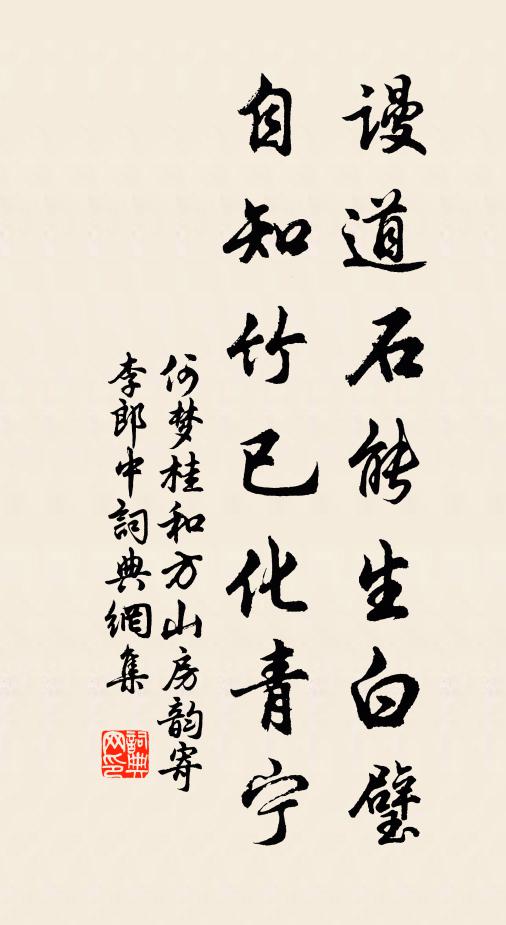 謾道石能生白璧
自知竹已化青宁
何梦桂和方山房韵寄
李郎中詞典網集
詞典网印